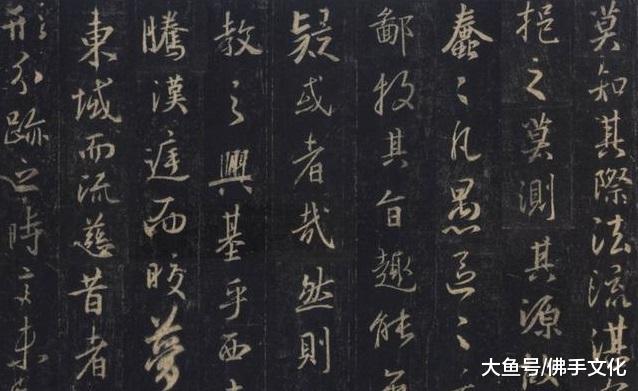 莫知其際法流湛
挹之莫測其源
蠢〻凡愚區〻
鄙投其旨趣能
疑或者哉然則
教之興基乎西
騰漢庭而皎夢
東域而流慈昔者
形分跡之時言未
大鱼号/佛手文化